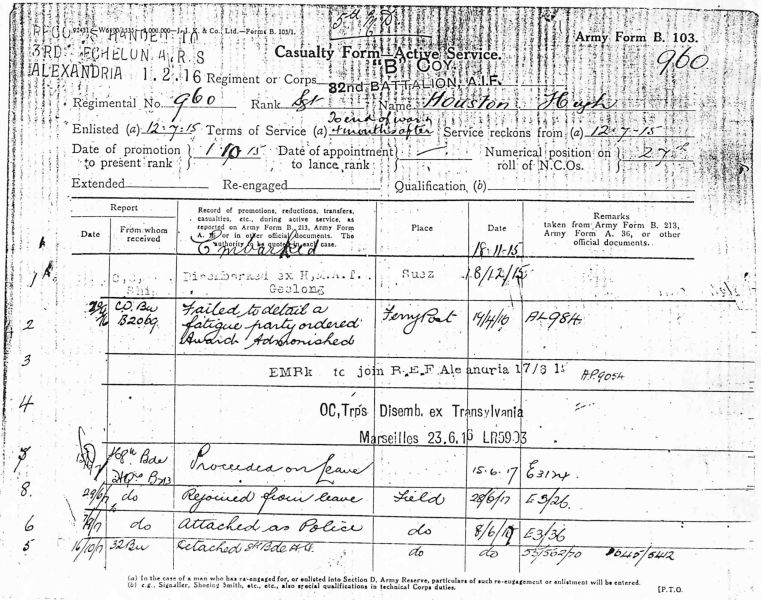 Army Form B. 103.
3RD. ECHELON A.R S
ALEXANDRIA 1.2.16
Casualty Form—Active Service.
960
"B" COY.
Regiment or Corps 32nd BATTALION A.I.F.
Regimental No. 960 Rank Sgt Name Houston Hugh
Enlisted (a) 12.7.15 Terms of Service (a) To end of war & 4 months after Service reckons from (a) 12-7-15
Date of promotion to present rank } 1 10 15 Date of appointment to lance rank } Numerical position on roll of N.C.Os. }
Extended Re-engaged Qualification, (b)
Report
Date From whom received
Record of promotions, reductions, transfers, casualties, etc., during active service, as reported on Army Form B. 213, Army Form A. 36, or in other official documents. The authority to be quoted in each case.
Place
Date
Remarks taken from Army Form B. 213, Army Form A. 36, or other official documents.
Embarked 18-11-15
1 Disembarked ex H.M.A.T. Geelong Suez 18/12/15
2 C.O. Bn B2069 Failed to detail a fatigue party ordered Award Admonished Ferry Post 19/4/16 AL984
3 to join B.E.F 17/6 AP9054
4 OC,Trps Disemb. ex Transylvania
Marseilles 23.6.16 LR5903
Proceeded on Leave 15.6.17
8. 29/6/17 do Rejoined from leave Field 28/6/17 E3/26.
6 do Attached as Police do E3/36
5 16/10/17 32 Bn Detached 8th Bde H.Q. do do
(a) In the case of a man who has re-engaged for, or enlisted into Section D, Army Reserve, particulars of such re-engagement or enlistment will be entered.
(b) e.g., Signaller, Shoeing Smith, etc., etc., also special qualifications in technical Corps duties.
[P.T.O.